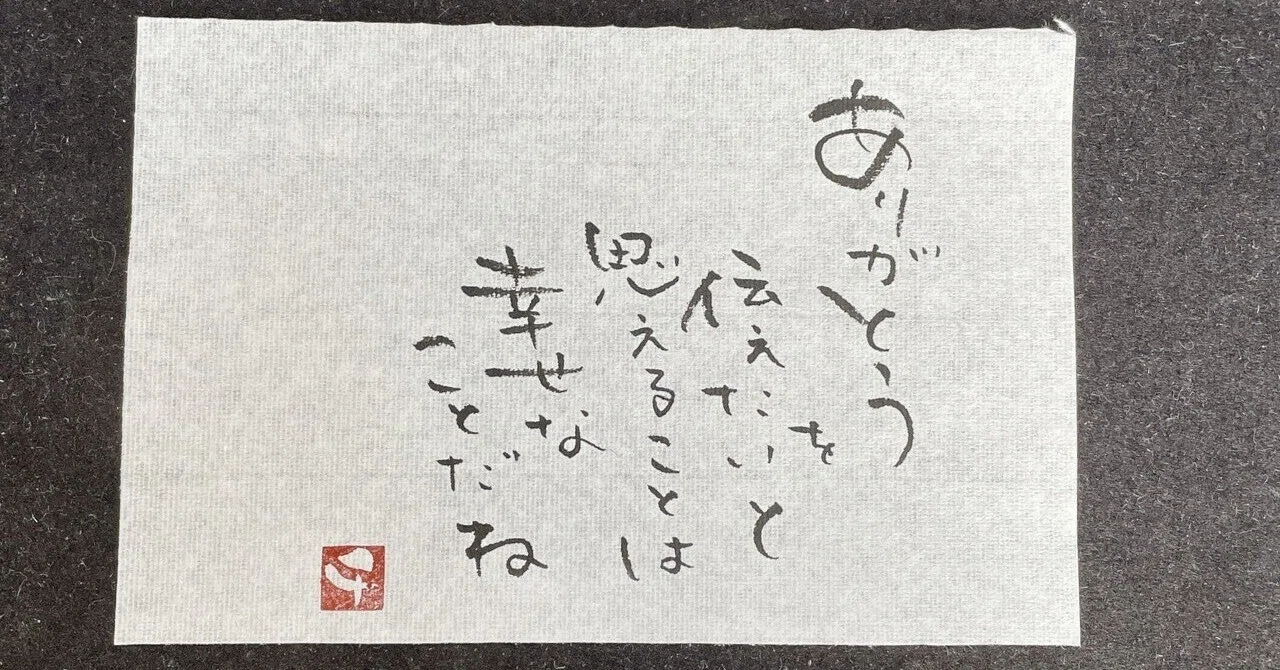 ありがとう
を
伝えたいと
思えることは
幸せな
ことだね